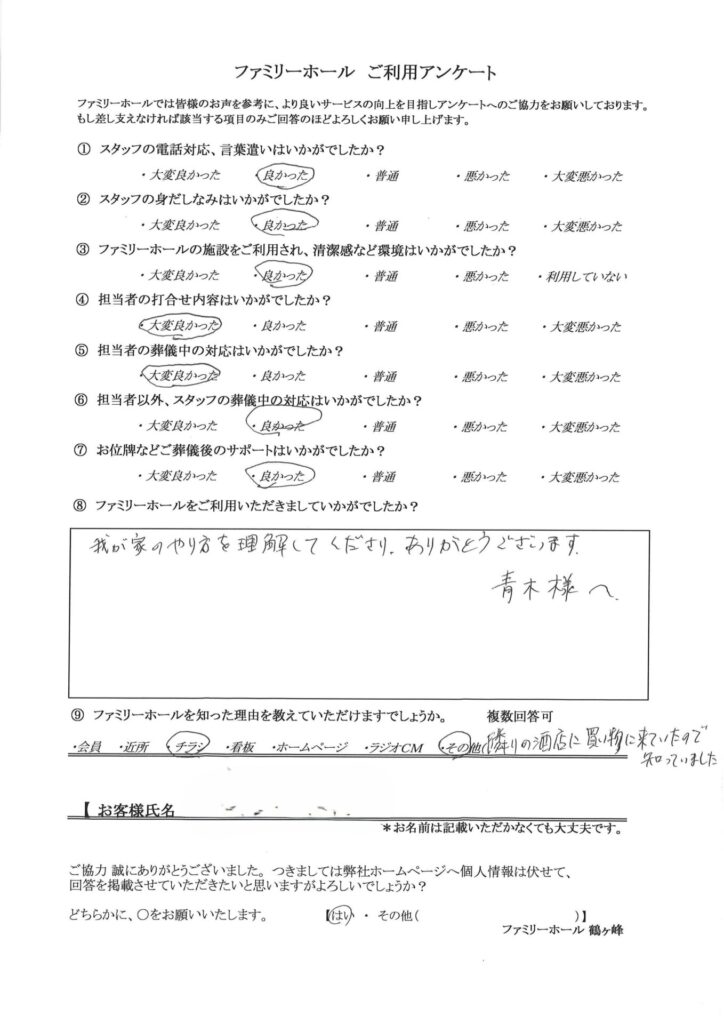 ファミリーホール ご利用アンケート
ファミリーホールでは皆様のお声を参考に、より良いサービスの向上を目指しアンケートへのご協力をお願いしております。
もし差し支えなければ該当する項目のみご回答のほどよろしくお願い申し上げます。
① スタッフの電話対応、言葉遣いはいかがでしたか?
・大変良かった ・良かった ・普通 ・悪かった ・大変悪かった
② スタッフの身だしなみはいかがでしたか?
・大変良かった ・良かった ・普通 ・悪かった ・大変悪かった
③ ファミリーホールの施設をご利用され、清潔感など環境はいかがでしたか?
・大変良かった ・良かった ・普通 ・悪かった ・利用していない
④ 担当者の打合せ内容はいかがでしたか?
・大変良かった ・良かった ・普通 ・悪かった ・大変悪かった
⑤ 担当者の葬儀中の対応はいかがでしたか?
・大変良かった ・良かった ・普通 ・悪かった ・大変悪かった
⑥ 担当者以外、スタッフの葬儀中の対応はいかがでしたか?
・大変良かった ・良かった ・普通 ・悪かった ・大変悪かった
⑦ お位牌などご葬儀後のサポートはいかがでしたか?
・大変良かった ・良かった ・普通 ・悪かった ・大変悪かった
⑧ ファミリーホールをご利用いただきましていかがでしたか?
我が家のやり方を理解してくださり、ありがとうございます。
青木様へ
⑨ ファミリーホールを知った理由を教えていただけますでしょうか。 複数回答可
・会員 ・近所 ・チラシ ・看板 ・ホームページ ・ラジオCM ・その他(隣りの酒店に買い物に来ていたので
知っていました
【 お客様氏名
*お名前は記載いただかなくても大丈夫です。
ご協力 誠にありがとうございました。つきましては弊社ホームページへ個人情報は伏せて、
回答を掲載させていただきたいと思いますがよろしいでしょうか?
どちらかに、○をお願いいたします。 【はい ・ その他( )】
ファミリーホール 鶴ヶ峰